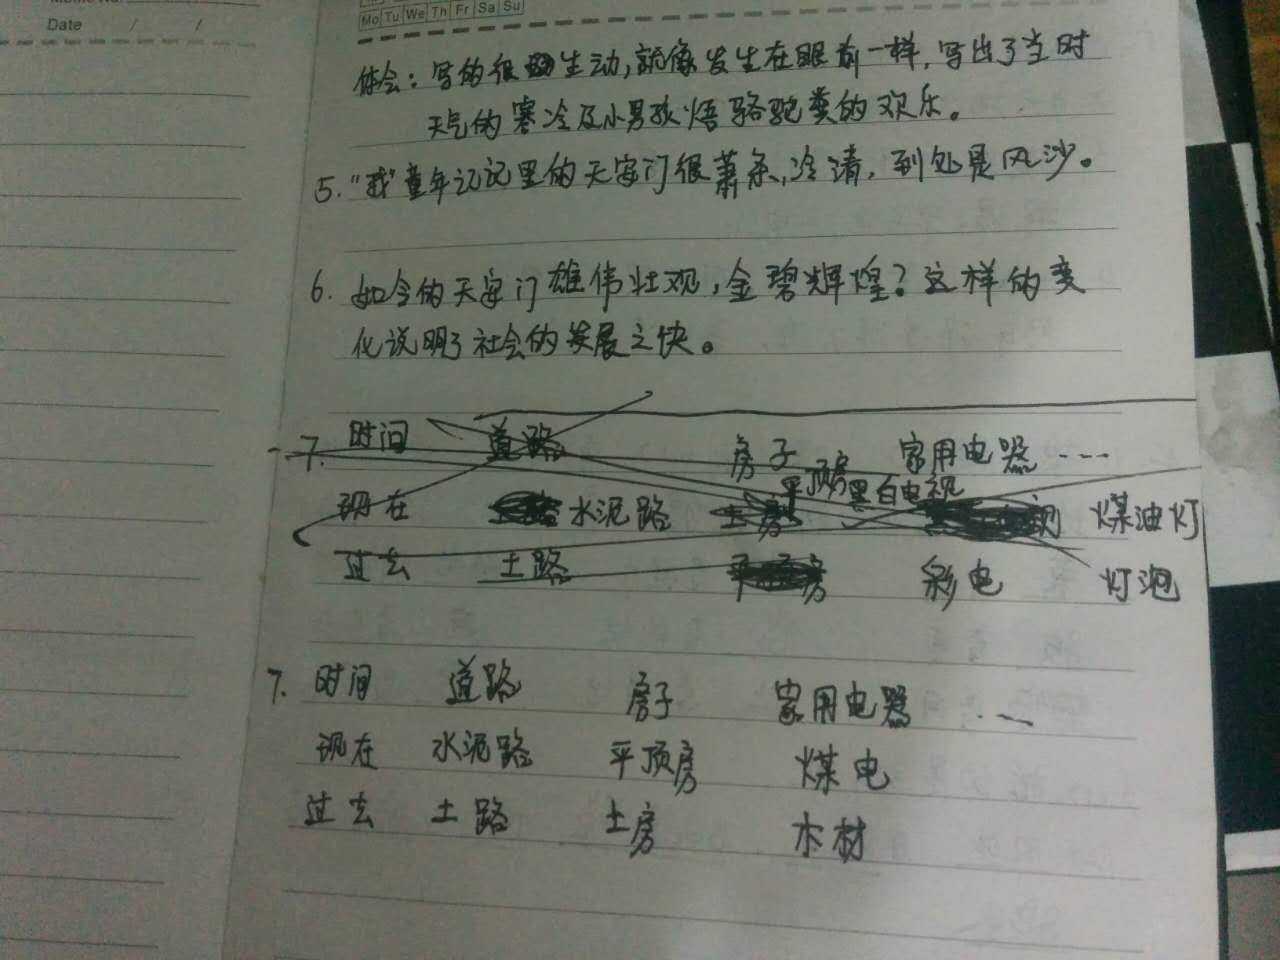 Date / /
Mo Tu We Th Fr Sa Su
体会：写的很生动，就像发生在眼前一样，写出了当时
天气的寒冷及小男孩焐骆驼粪的欢乐。
5. "我"童年记记里的天安门很萧条，冷清，到处是风沙。
6. 如今的天安门雄伟壮观，金碧辉煌？这样的变
化说明了社会的发展之快。
7. 时间 道路 房子 家用电器 ....
平顶房 黑白电视
现在 水泥路 土房 煤油灯
过去 土路 房 彩电 灯泡
7. 时间 道路 房子 家用电器 ...
现在 水泥路 平顶房 煤电
过去 土路 土房 木材